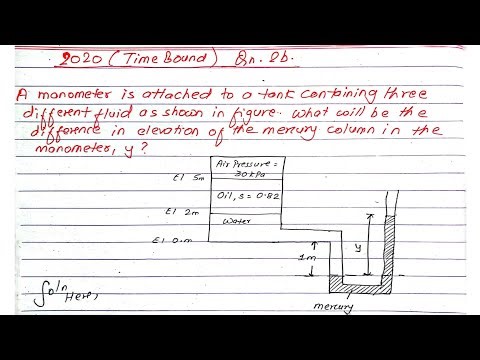 2020 (Time Bound) Qn. 2b.
A manometer is attached to a tank containing three
different fluid as shown in figure. What will be the
difference in elevation of the mercury column in the
manometer, y?
Air Pressure =
30 kPa
El 5m
Oil, s = 0.82
El 2m
Water
El 0.m
1m
y
Soln
Here,
mercury